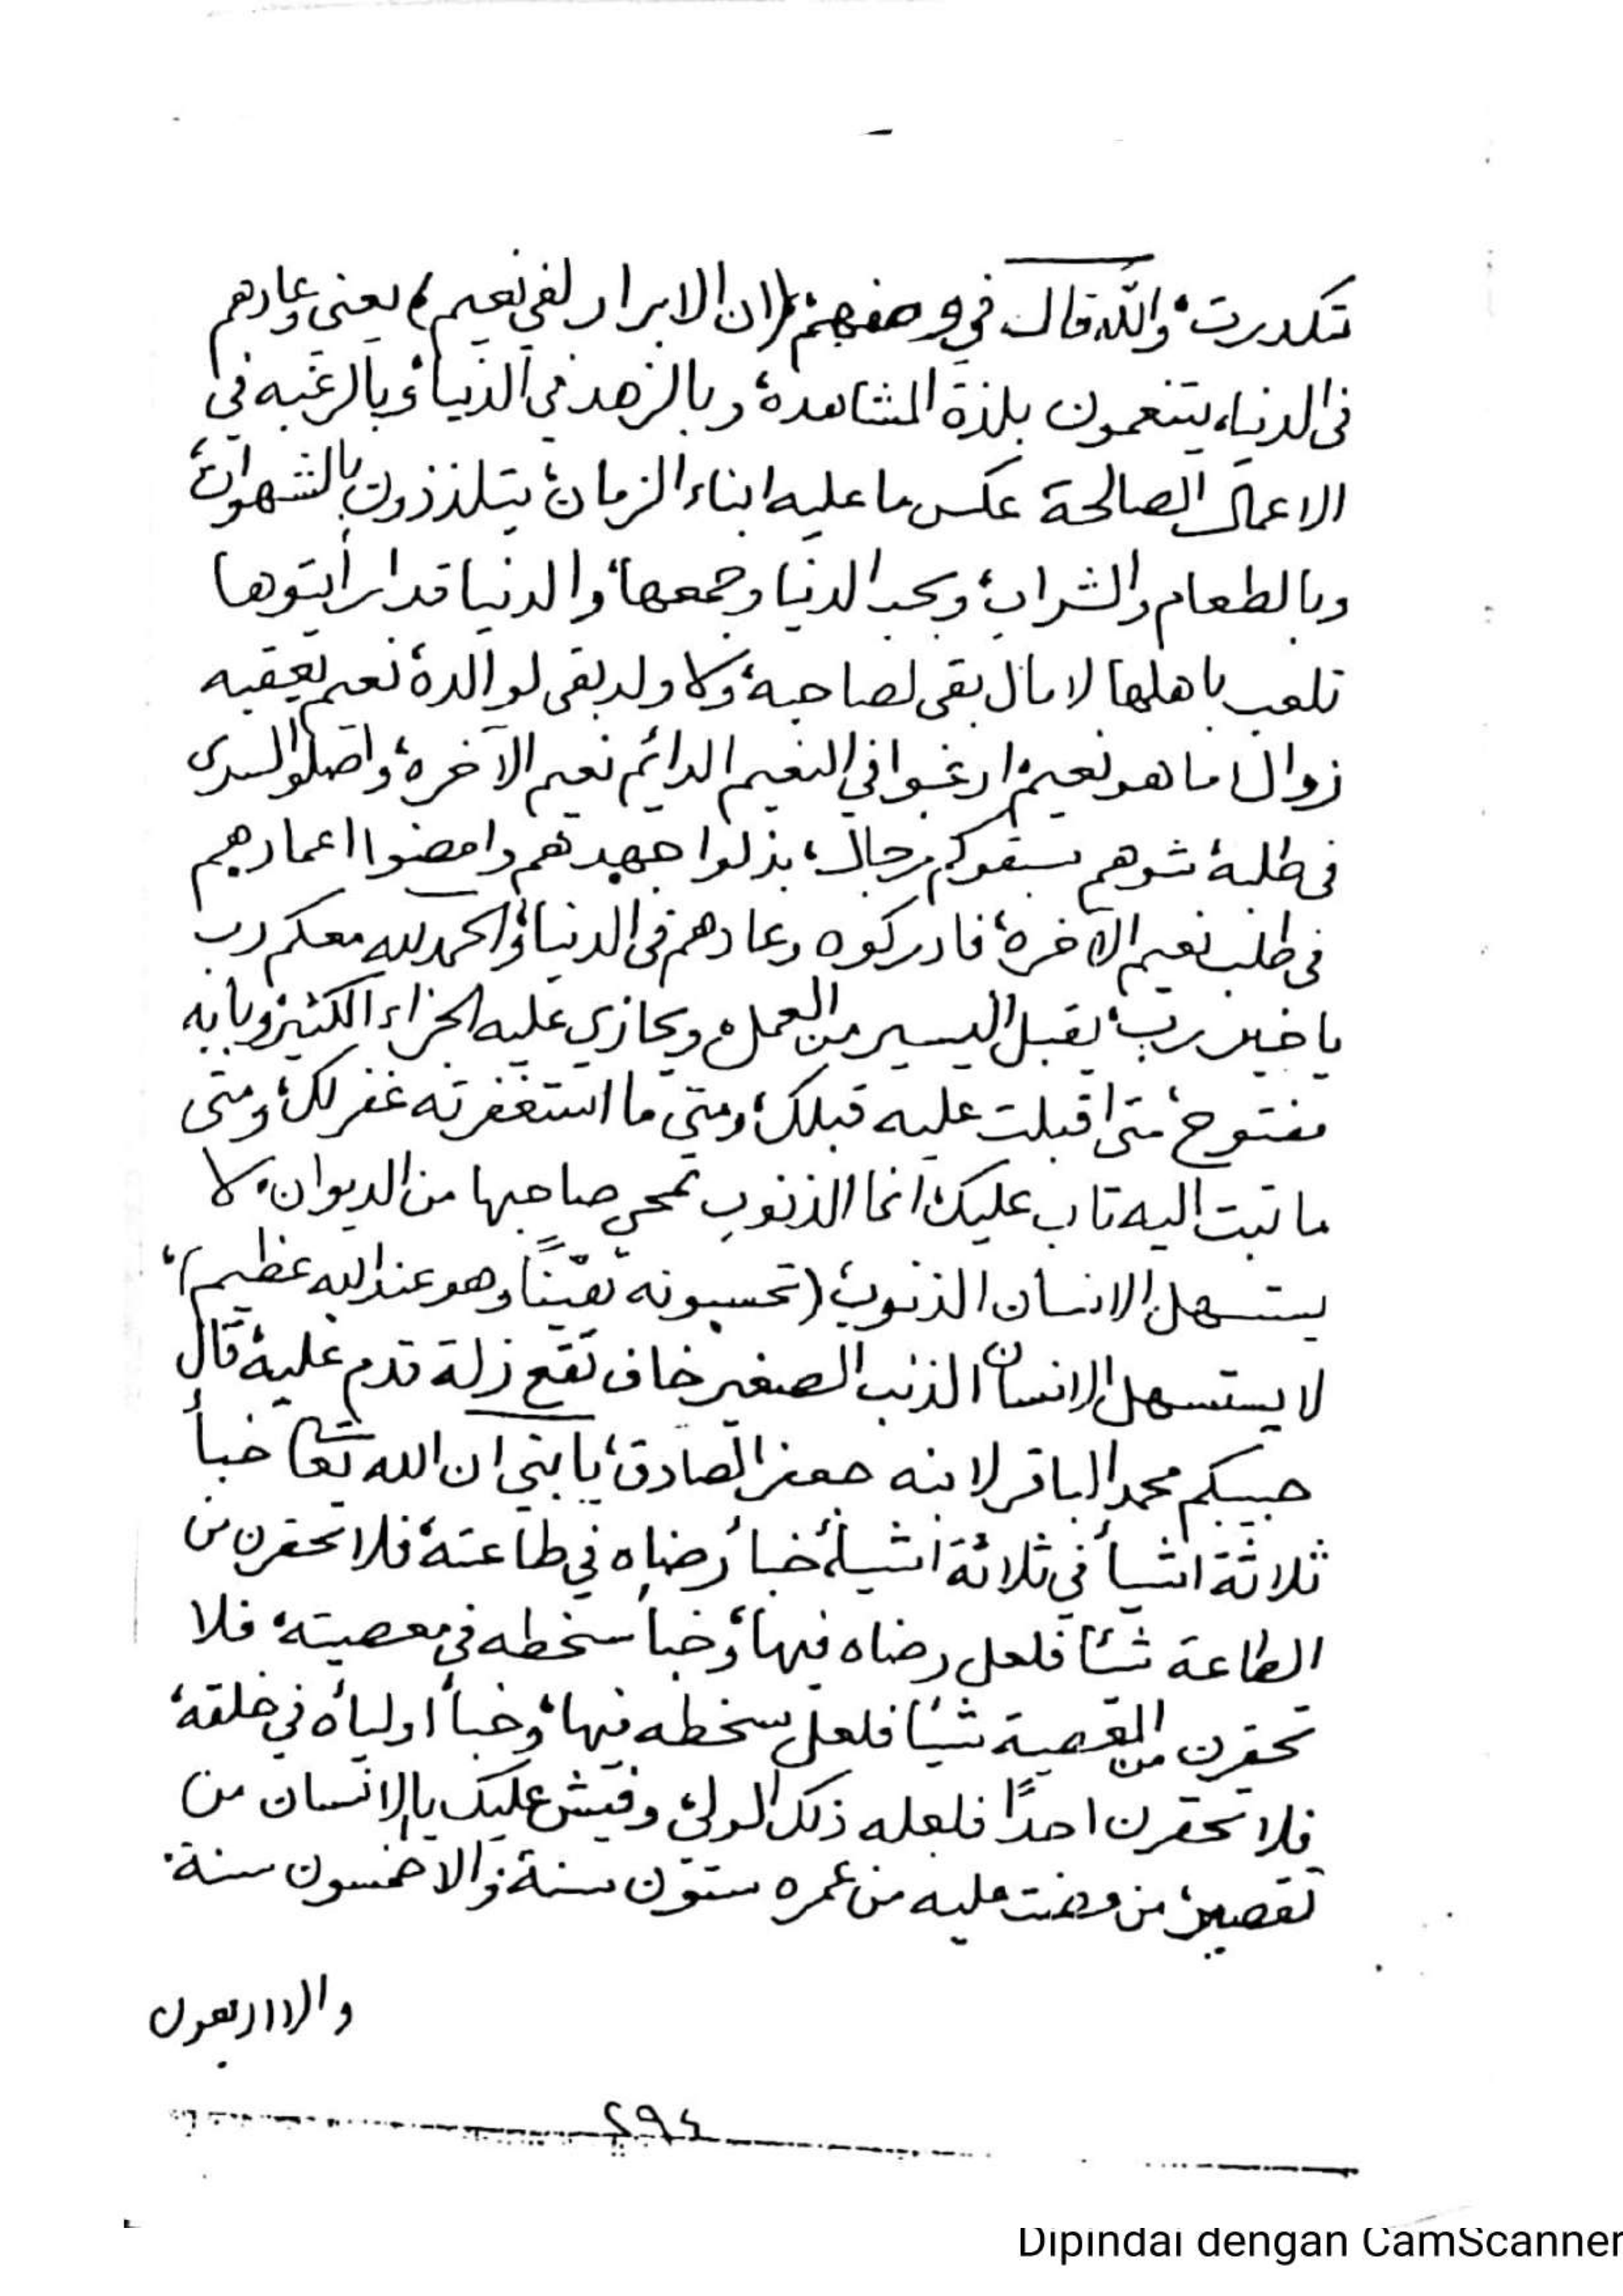 تكدرت، والله قال في وصفهم (ان الابرار لفي نعيم) يعني وعادهم
في الدنيا، يتنعمون بلذة المشاهدة، وبالزهد في الدنيا، وبالرغبه في
الاعمال الصالحة عكس ما عليه ابناء الزمان، يتلذذون بالشهوات،
وبالطعام والشراب، وبحب الدنيا وجمعها، والدنيا قدا رأيتوها
تلعب باهلها لا مال بقى لصاحبه، ولا ولد بقى لوالده، نعيم يعقبه
زوال ما هو نعيم، ارغبوا في النعيم الدائم نعيم الآخره، واصلوا السرى
في طلبه، شوهم سبقوكم رجال، بذلوا جهدهم وامضوا اعمارهم
في طلب نعيم الآخره، فادركوه وعادهم في الدنيا، والحمد لله معكم رب
يا خير رب، يقبل اليسير من العمل، ويجازي عليه الجزاء الكثير، وبابه
مفتوح، متى اقبلت عليه قبلك، ومتى ما استغفرته غفر لك، ومتى
ما تبت اليه تاب عليك، انما الذنوب تمحي صاحبها من الديوان، لا
يستسهل الانسان الذنوب، (تحسبونه هيّنًا وهو عند الله عظيم)،
لا يستسهل الانسان الذنب الصغير خاف تقع زلة قدم عليه، قال
حبيبكم محمد الباقر لابنه جعفر الصادق، يا بني ان الله تعالى خبأ
ثلاثة اشيأ في ثلاثة اشيأ، خبأ رضاه في طاعته، فلا تحقرن من
الطاعة شيئا فلعل رضاه فيها، وخبأ سخطه في معصيته، فلا
تحقرن من المعصية شيئا فلعل سخطه فيها، وخبأ اولياه في خلقه،
فلا تحقرن احدًا فلعله ذلك الولي، وفيش عليك يا الانسان من
تقصير، من مضت عليه من عمره ستون سنة، والا خمسون سنة،
والا اربعون
٢٩٤
Dipindai dengan CamScanner